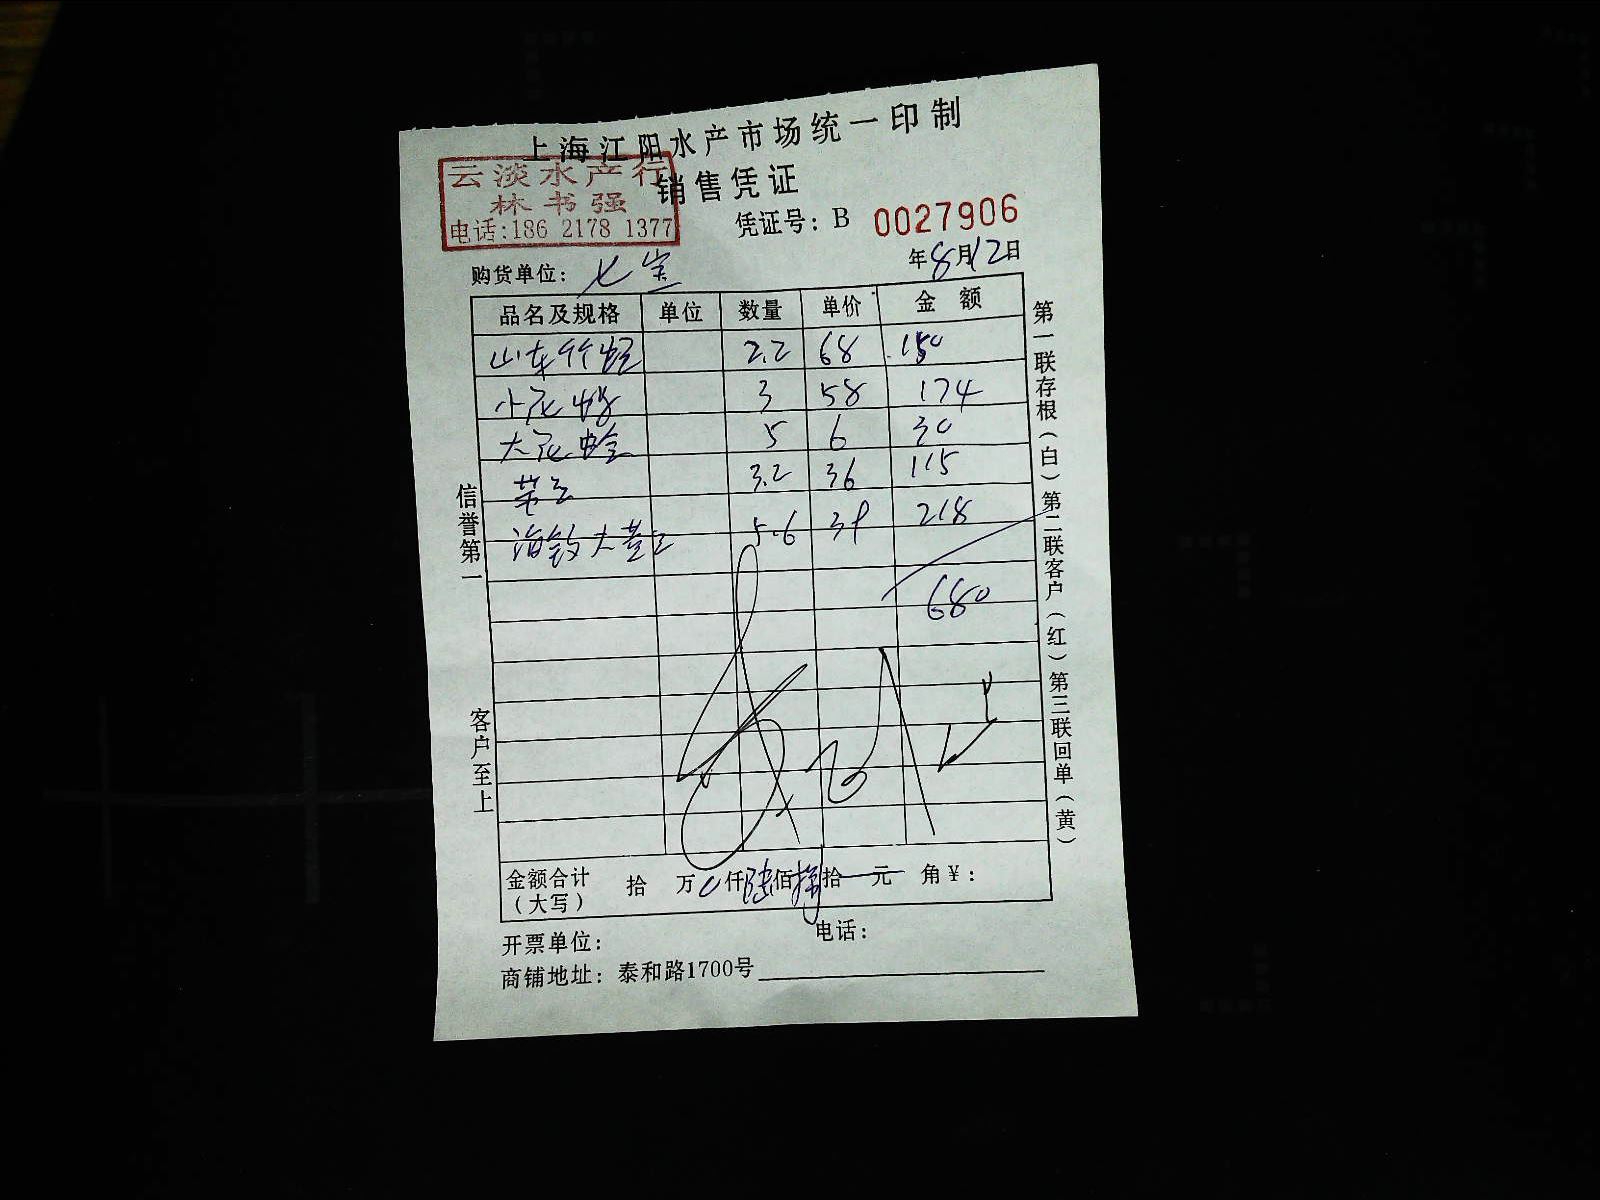 上海江阳水产市场统一印制
云淡水产行
销售凭证
林书强
电话:186 2178 1377
凭证号: B 0027906
年8月12日
购货单位: 七宝
品名及规格 单位 数量 单价 金额
山东竹蛏 2.2 68 150
小花 3 58 174
大花蛤 5 6 30
3.2 36 115
海 大 5.6 39 218
680
金额合计 拾 万 0仟陆佰捌拾 元 角¥:
(大写)
开票单位: 电话:
商铺地址: 泰和路1700号
信誉第一
客户至上
第一联存根(白)第二联客户(红)第三联回单(黄)